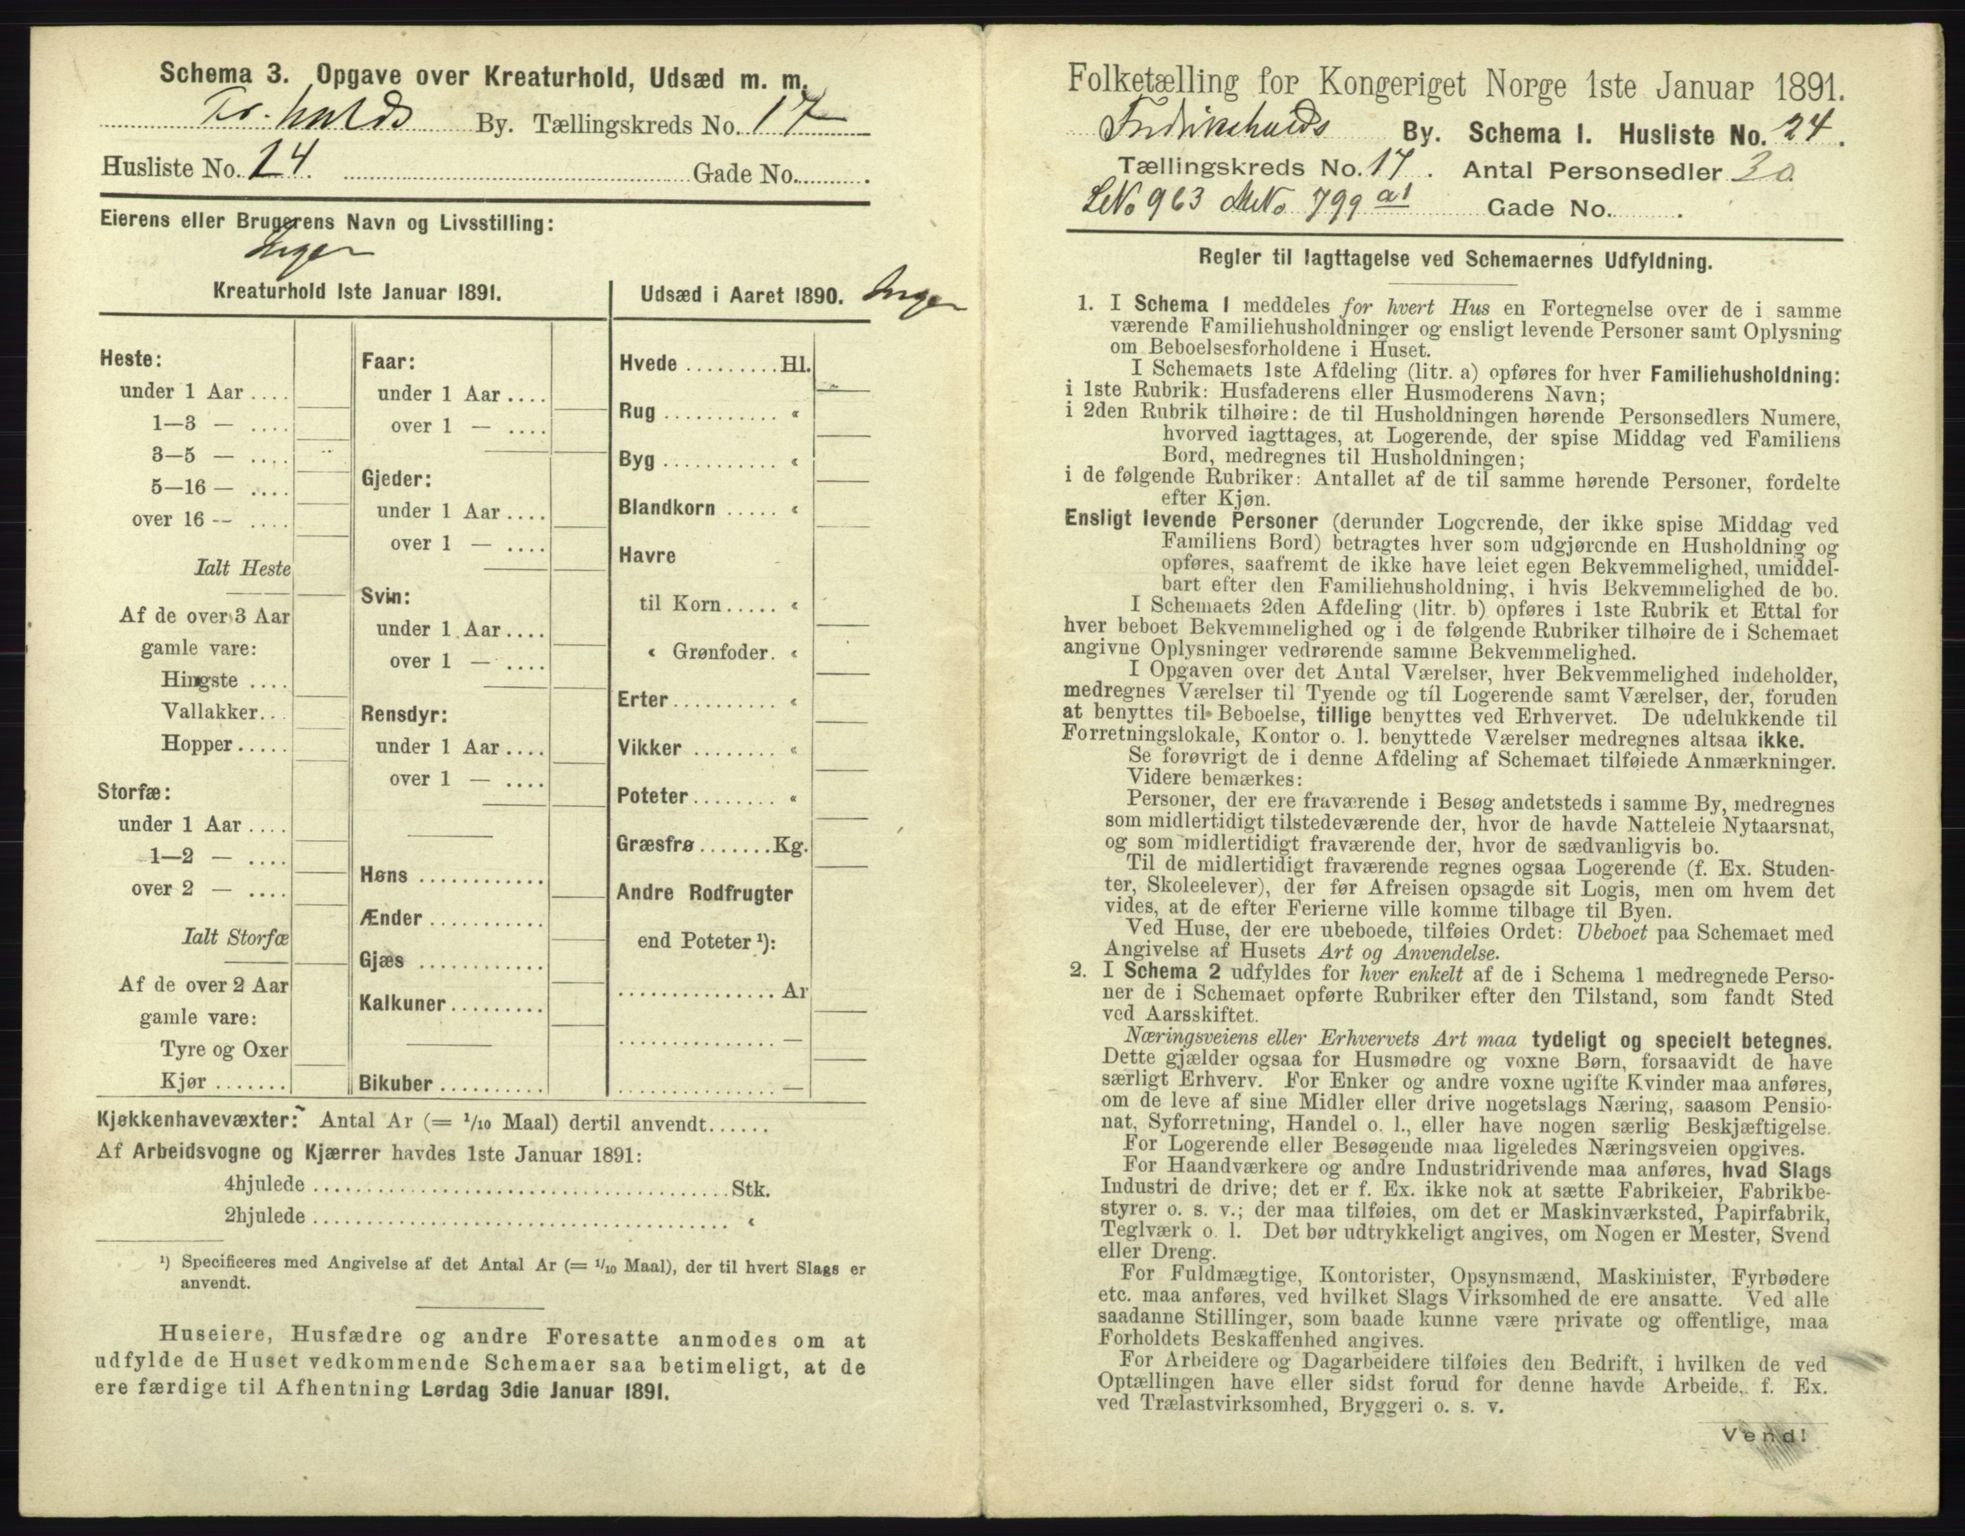 Schema 3. Opgave over Kreaturhold, Udsæd m. m.
Fr.halds By. Tællingskreds No. 17
Husliste No. 24. Gade No. .
Eierens eller Brugerens Navn og Livsstilling:
Ingen
Kreaturhold 1ste Januar 1891.
Heste:
under 1 Aar ....
1—3 — ....
3—5 — ....
5—16 — ....
over 16 -- ....
Ialt Heste
Af de over 3 Aar
gamle vare:
Hingste ....
Vallakker...
Hopper.....
Storfæ:
under 1 Aar ....
1—2 — ....
over 2 — ....
Ialt Storfæ
Af de over 2 Aar
gamle vare:
Tyre og Oxer
Kjør .......
Faar:
under 1 Aar ....
over 1 — ....
Gjeder:
under 1 Aar ....
over 1 — ....
Svin:
under 1 Aar ....
over 1 — ....
Rensdyr:
under 1 Aar ....
over 1 — ....
Høns ............
Ænder ...........
Gjæs ............
Kalkuner .........
Bikuber ..........
Udsæd i Aaret 1890. Ingen
Hvede .........Hl.
Rug ........... «
Byg ........... «
Blandkorn ..... «
Havre
til Korn..... «
« Grønfoder. «
Erter.......... «
Vikker ........ «
Poteter........ «
Græsfrø .......Kg.
Andre Rodfrugter
end Poteter ¹):
............... Ar
............... —
............... —
Kjøkkenhavevæxter: Antal Ar (= 1/10 Maal) dertil anvendt......
Af Arbeidsvogne og Kjærrer havdes 1ste Januar 1891:
4hjulede ........................................Stk.
2hjulede ........................................ «
¹) Specificeres med Angivelse af det Antal Ar (= 1/10 Maal), der til hvert Slags er
anvendt.
Huseiere, Husfædre og andre Foresatte anmodes om at
udfylde de Huset vedkommende Schemaer saa betimeligt, at de
ere færdige til Afhentning Lørdag 3die Januar 1891.
Folketælling for Kongeriget Norge 1ste Januar 1891.
Fredrikshalds By. Schema I. Husliste No. 24.
Tællingskreds No. 17. Antal Personsedler 30
LNo 963 MNo 799 a1 Gade No. .
Regler til Iagttagelse ved Schemaernes Udfyldning.
1. I Schema 1 meddeles for hvert Hus en Fortegnelse over de i samme
værende Familiehusholdninger og ensligt levende Personer samt Oplysning
om Beboelsesforholdene i Huset.
I Schemaets 1ste Afdeling (litr. a) opføres for hver Familiehusholdning:
i 1ste Rubrik: Husfaderens eller Husmoderens Navn;
i 2den Rubrik tilhøire: de til Husholdningen hørende Personsedlers Numere,
hvorved iagttages, at Logerende, der spise Middag ved Familiens
Bord, medregnes til Husholdningen;
i de følgende Rubriker: Antallet af de til samme hørende Personer, fordelte
efter Kjøn.
Ensligt levende Personer (derunder Logerende, der ikke spise Middag ved
Familiens Bord) betragtes hver som udgjørende en Husholdning og
opføres, saafremt de ikke have leiet egen Bekvemmelighed, umiddel-
bart efter den Familiehusholdning, i hvis Bekvemmelighed de bo.
I Schemaets 2den Afdeling (litr. b) opføres i 1ste Rubrik et Ettal for
hver beboet Bekvemmelighed og i de følgende Rubriker tilhøire de i Schemaet
angivne Oplysninger vedrørende samme Bekvemmelighed.
I Opgaven over det Antal Værelser, hver Bekvemmelighed indeholder,
medregnes Værelser til Tyende og til Logerende samt Værelser, der, foruden
at benyttes til Beboelse, tillige benyttes ved Erhvervet. De udelukkende til
Forretningslokale, Kontor o. l. benyttede Værelser medregnes altsaa ikke.
Se forøvrigt de i denne Afdeling af Schemaet tilføiede Anmærkninger.
Videre bemærkes:
Personer, der ere fraværende i Besøg andetsteds i samme By, medregnes
som midlertidigt tilstedeværende der, hvor de havde Natteleie Nytaarsnat,
og som midlertidigt fraværende der, hvor de sædvanligvis bo.
Til de midlertidigt fraværende regnes ogsaa Logerende (f. Ex. Studen-
ter, Skoleelever), der før Afreisen opsagde sit Logis, men om hvem det
vides, at de efter Ferierne ville komme tilbage til Byen.
Ved Huse, der ere ubeboede, tilføies Ordet: Ubeboet paa Schemaet med
Angivelse af Husets Art og Anvendelse.
2. I Schema 2 udfyldes for hver enkelt af de i Schema 1 medregnede Perso-
ner de i Schemaet opførte Rubriker efter den Tilstand, som fandt Sted
ved Aarsskiftet.
Næringsveiens eller Erhvervets Art maa tydeligt og specielt betegnes.
Dette gjælder ogsaa for Husmødre og voxne Børn, forsaavidt de have
særligt Erhverv. For Enker og andre voxne ugifte Kvinder maa anføres,
om de leve af sine Midler eller drive nogetslags Næring, saasom Pensio-
nat, Syforretning, Handel o. l., eller have nogen særlig Beskjæftigelse.
For Logerende eller Besøgende maa ligeledes Næringsveien opgives.
For Haandværkere og andre Industridrivende maa anføres, hvad Slags
Industri de drive; det er f. Ex. ikke nok at sætte Fabrikeier, Fabrikbe-
styrer o. s. v.; der maa tilføies, om det er Maskinværksted, Papirfabrik,
Teglværk o. l. Det bør udtrykkeligt angives, om Nogen er Mester, Svend
eller Dreng.
For Fuldmægtige, Kontorister, Opsynsmænd, Maskinister, Fyrbødere
etc. maa anføres, ved hvilket Slags Virksomhed de ere ansatte. Ved alle
saadanne Stillinger, som baade kunne være private og offentlige, maa
Forholdets Beskaffenhed angives.
For Arbeidere og Dagarbeidere tilføies den Bedrift, i hvilken de ved
Optællingen have eller sidst forud for denne havde Arbeide, f. Ex.
ved Trælastvirksomhed, Bryggeri o. s. v.
Vend!